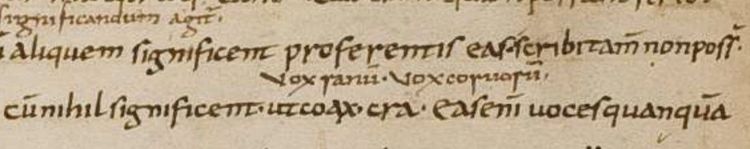 significandum agit̄.
aliquem significent proferentis eas. scribi tam̄ non poss̄.
vox ranū. vox corvorū.
cū nihil significent. ut coax. cra. Eas enī voces quanquā